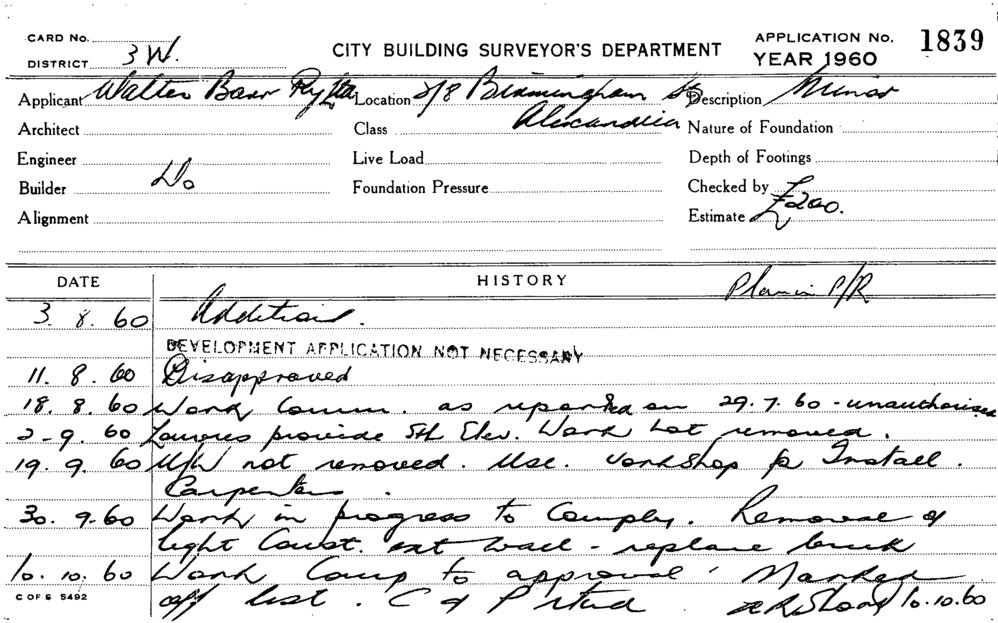 CARD No.
DISTRICT 3W.
CITY BUILDING SURVEYOR'S DEPARTMENT
APPLICATION No. 1839
YEAR 1960
Applicant Walter Barr Pty Ltd Location 2/8 Birmingham St Description Minor
Architect Class Alexandria Nature of Foundation
Engineer Live Load Depth of Footings
Builder Do Foundation Pressure Checked by
Alignment Estimate £200.
DATE HISTORY Plan in P/R
3. 8. 60 Additions.
DEVELOPMENT APPLICATION NOT NECESSARY
11. 8. 60 Disapproved
18. 8. 60 Work Comm. as reported on 29.7.60 - unauthorised
2-9. 60 Louvres provide Sth Elev. Work not removed.
19. 9. 60 U/W not removed. Use. Workshop for Install.
Carpenters.
30. 9.60 Work in progress to Comply. Removal of
light Const. ext wall - replace brick
10. 10. 60 Work Comp to approval. Marked
off list. C of P 10.10.60
C OF S 5492